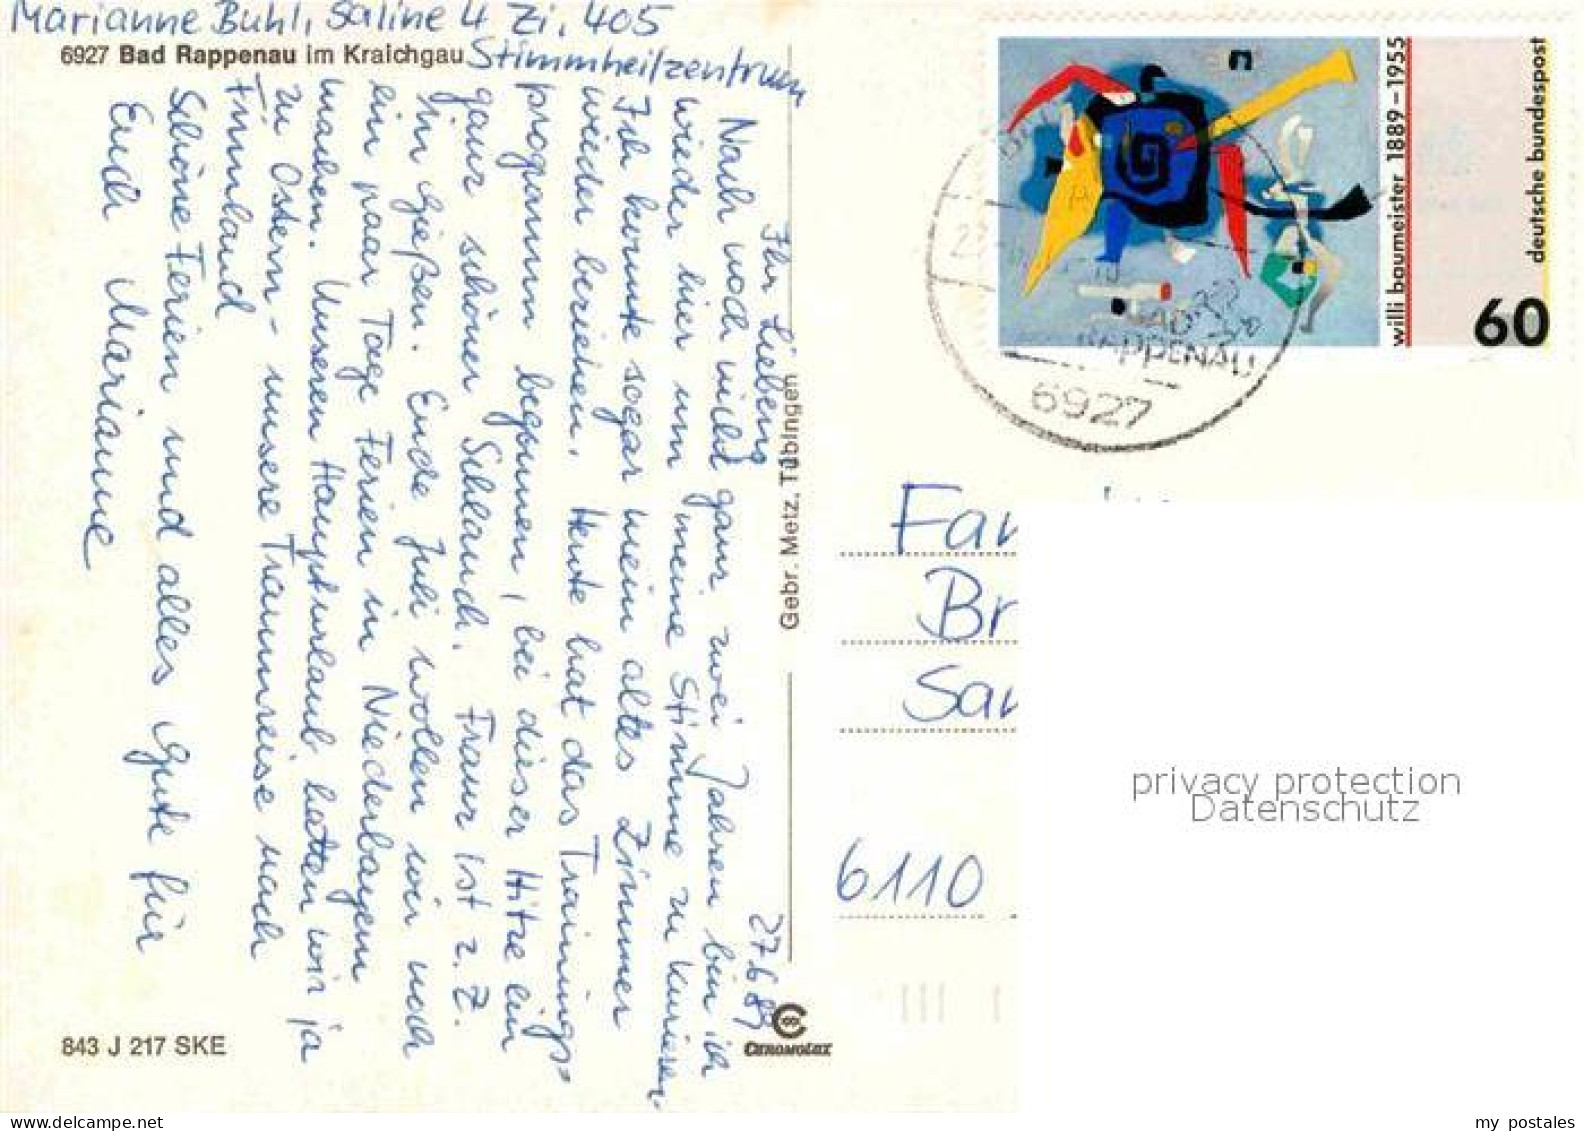 Marianne Buhl, Saline 4 Zi. 405
6927 Bad Rappenau im Kraichgau
Stimmheilzentrum
27.6.89
Ihr Lieben,
Nach noch nicht ganz zwei Jahren bin ich
wieder hier um meine Stimme zu kurieren.
Ich konnte sogar mein altes Zimmer
wieder beziehen. Heute hat das Trainings-
programm begonnen, bei dieser Hitze ein
ganz schöner Schlauch. Franz ist z. Z.
in Gießen. Ende Juli wollen wir noch
ein paar Tage Ferien in Niederbayern
machen. Unseren Haupturlaub hatten wir ja
zu Ostern - unsere Traumreise nach
Finnland
Schöne Ferien und alles Gute für
Euch Marianne
843 J 217 SKE
Gebr. Metz, Tübingen
Chromolux
willi baumeister 1889-1955
deutsche bundespost
60
BAD
RAPPENAU
6927
Fam
Br
San
6110
privacy protection
Datenschutz
my postales